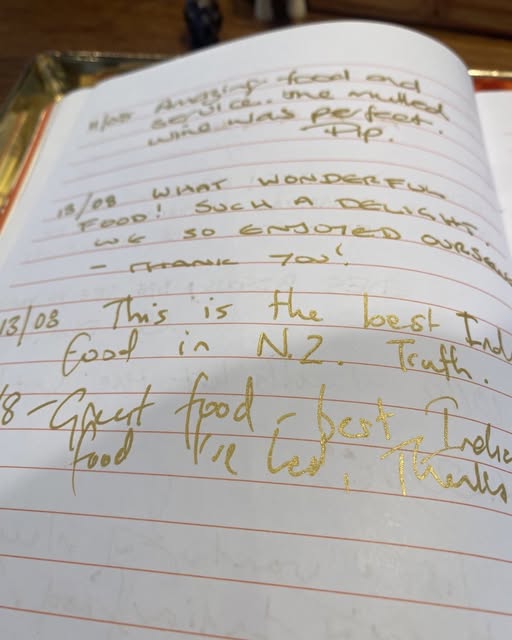 11/08 Amazing food and
service. The mulled
wine was perfect.
Pip.
13/08 WHAT WONDERFUL
FOOD! SUCH A DELIGHT.
WE SO ENJOYED OURSE
- THANK YOU!
13/08 This is the best Ind
food in N.Z. Truth.
/8 - Great food - best India
food I've had, Thanks